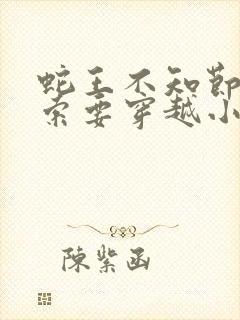 蛇王不知節
索要穿越小
陳紫函